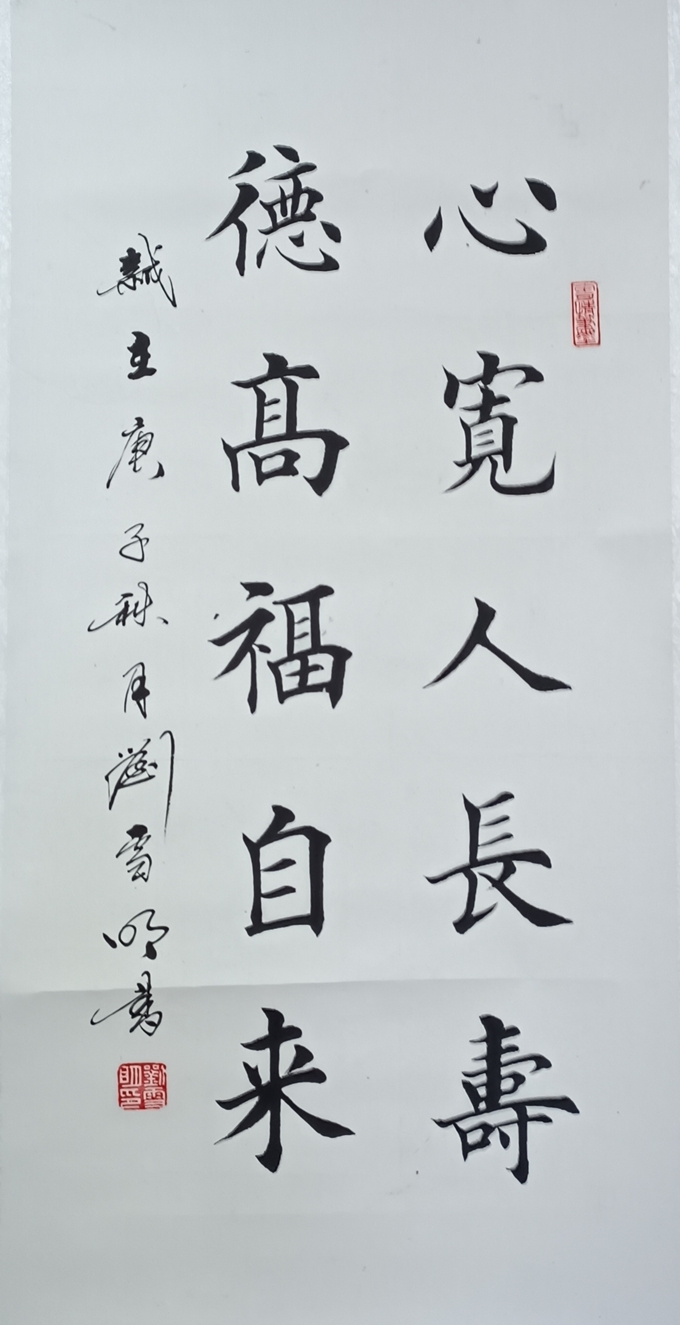 心寬人長壽
德高福自来
歲在庚子秋月劉雪明書
劉雪明印